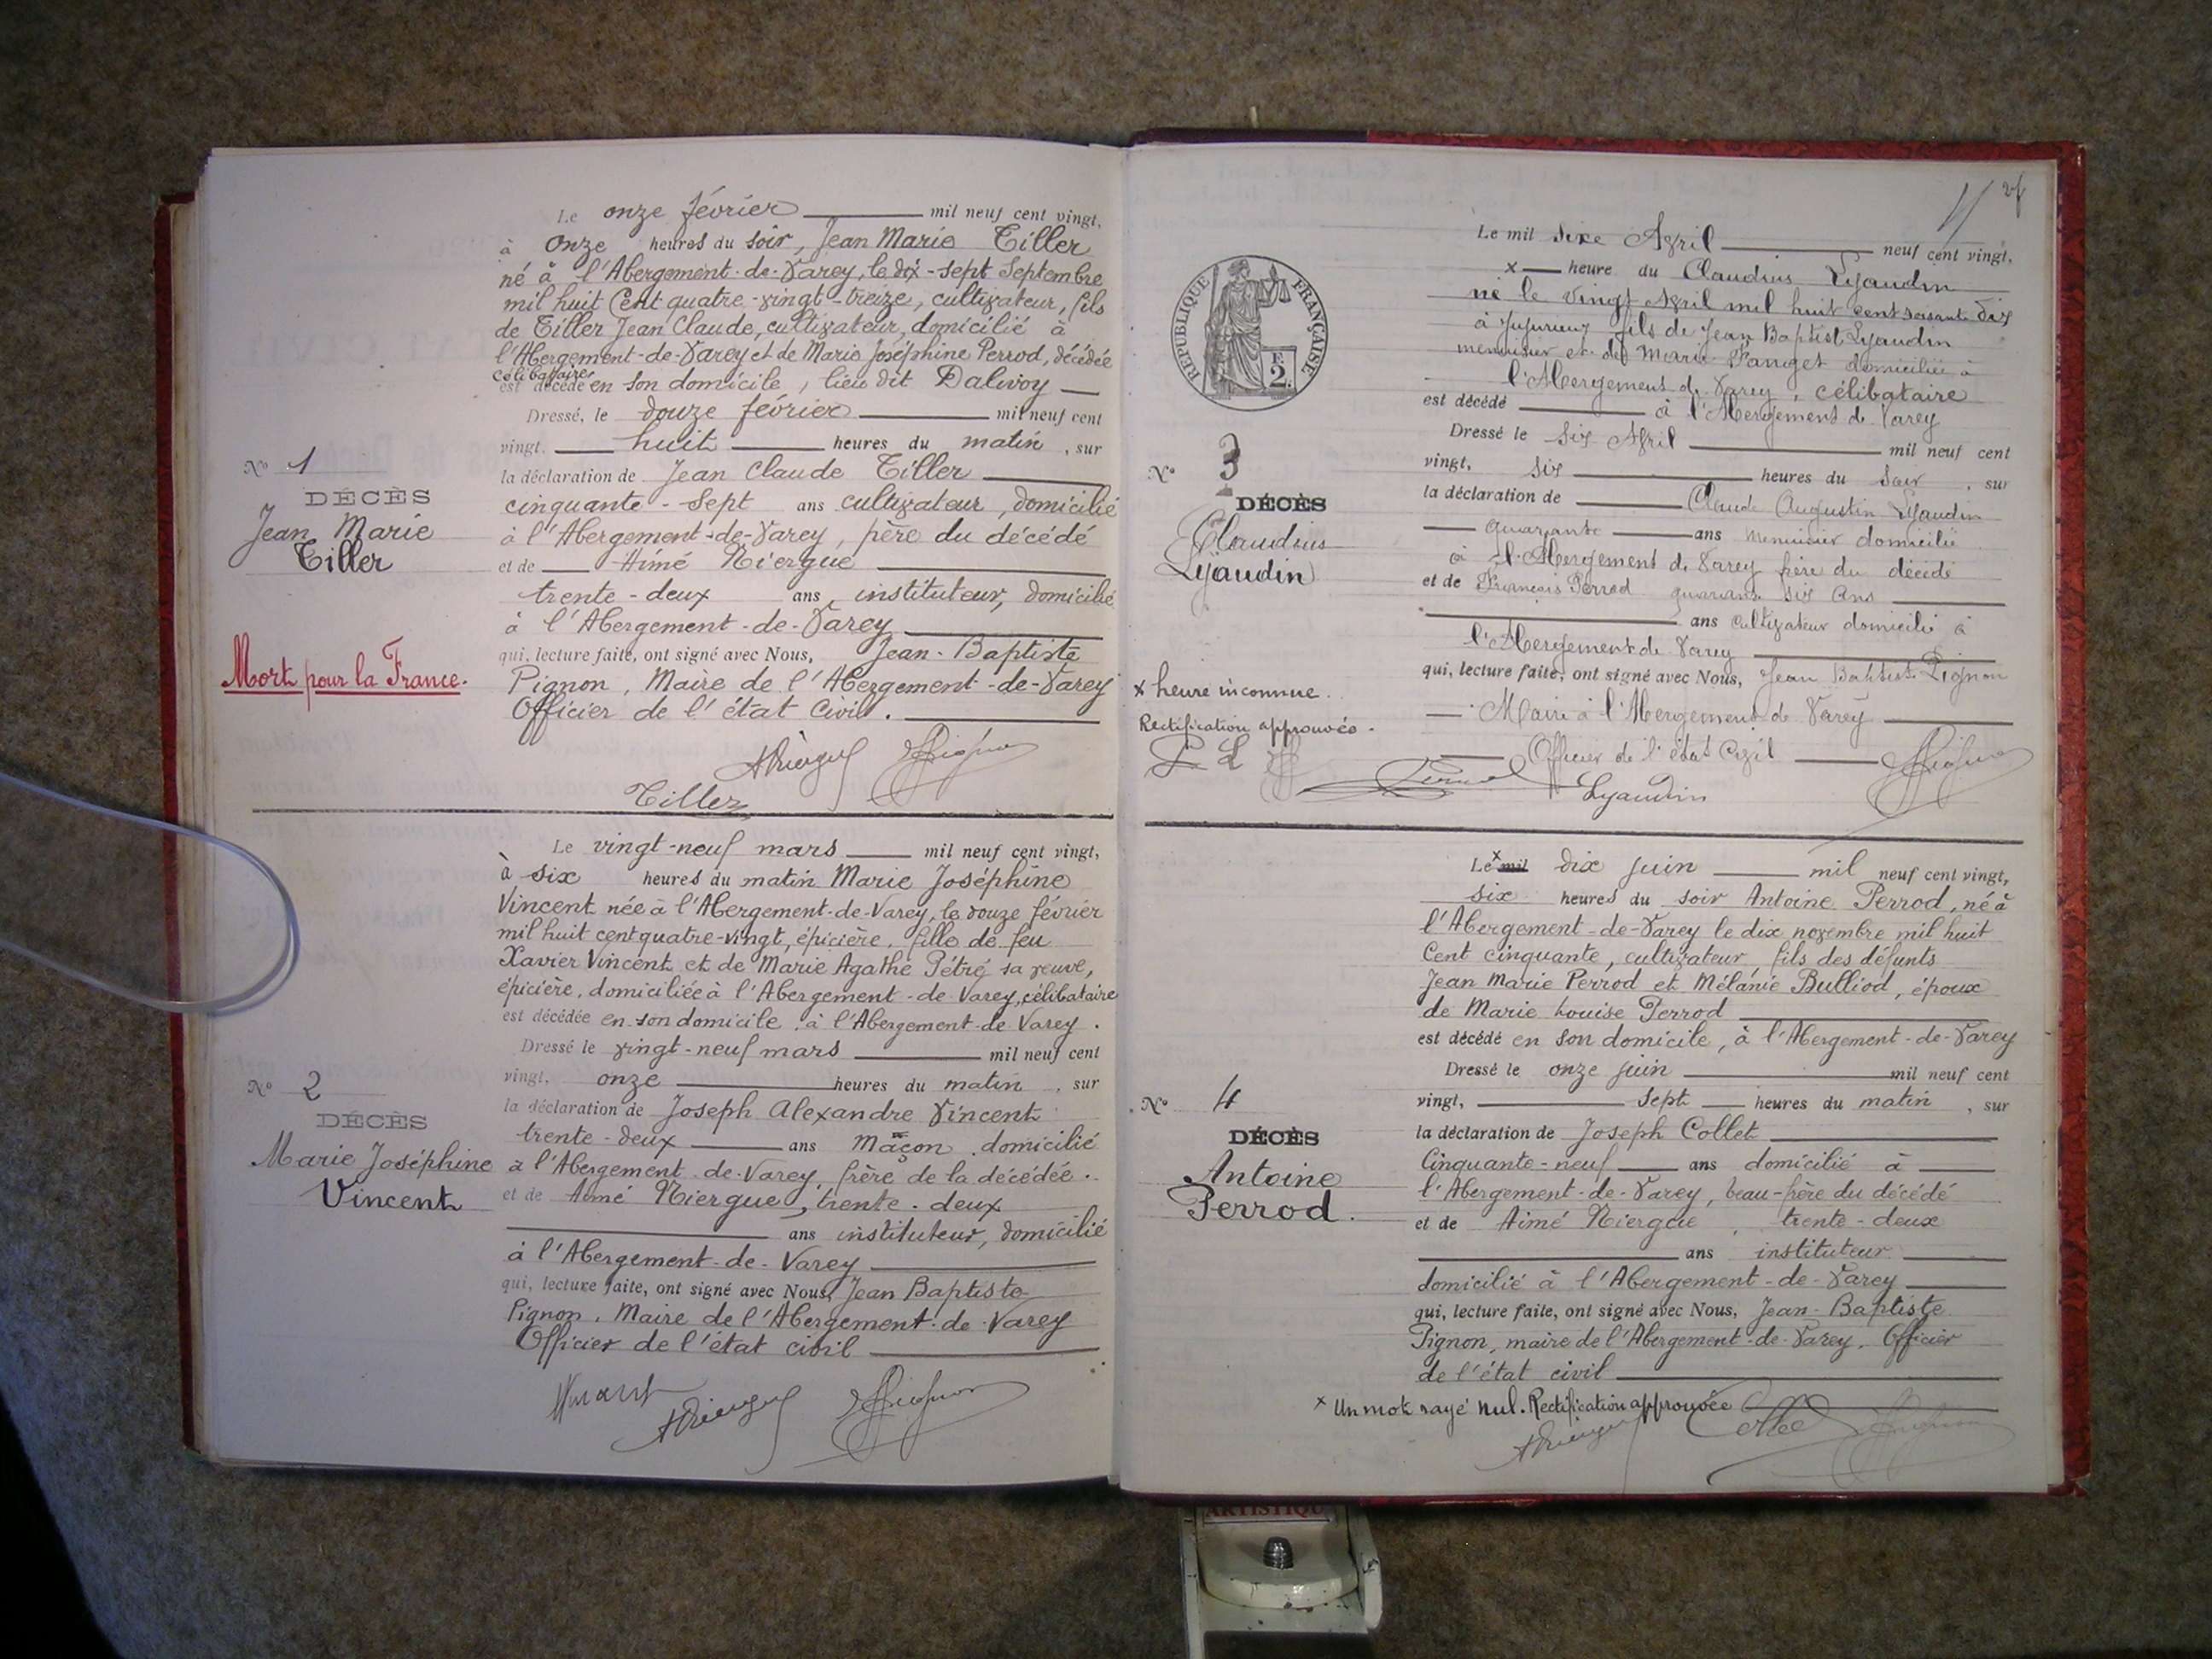 Le onze février mil neuf cent vingt,
à onze heures du soir, Jean Marie Tiller
né à l'Abergement-de-Varey, le dix-sept Septembre
mil huit Cent quatre-vingt-treize, cultivateur, fils
de Tiller Jean Claude, cultivateur, domicilié à
l'Abergement-de-Varey et de Marie Joséphine Perrod, décédée
célibataire
est décédé en son domicile, lieu dit Dalivoy
Dressé, le douze février mil neuf cent
vingt, huit heures du matin, sur
la déclaration de Jean Claude Tiller
cinquante-sept ans cultivateur, domicilié
à l'Abergement-de-Varey, père du décédé
et de Aimé Niergue
trente-deux ans, instituteur, domicilié
à l'Abergement-de-Varey
qui, lecture faite, ont signé avec Nous, Jean-Baptiste
Pignon, Maire de l'Abergement-de-Varey
Officier de l'état Civil.
Tiller
N° 1
DÉCÈS
Jean Marie
Tiller
Mort pour la France.
Le vingt-neuf mars mil neuf cent vingt,
à six heures du matin Marie Joséphine
Vincent née à l'Abergement-de-Varey, le douze février
mil huit cent quatre-vingt, épicière, fille de feu
Xavier Vincent et de Marie Agathe Pétré sa veuve,
épicière, domiciliée à l'Abergement-de Varey, célibataire
est décédée en son domicile, à l'Abergement-de Varey.
Dressé le vingt-neuf mars mil neuf cent
vingt, onze heures du matin, sur
la déclaration de Joseph Alexandre Vincent
trente-deux ans maçon, domicilié
à l'Abergement-de-Varey, frère de la décédée.
et de Aimé Niergue, trente-deux
ans instituteur, domicilié
à l'Abergement-de-Varey
qui, lecture faite, ont signé avec Nous, Jean Baptiste
Pignon, Maire de l'Abergement-de-Varey
Officier de l'état civil
N° 2
DÉCÈS
Marie Joséphine
Vincent
Le mil sixe Avril neuf cent vingt,
x heure du Claudius Lyaudin
né le vingt Avril mil huit cent soixante dix
à Jujurieux fils de Jean Baptist Lyaudin
menuisier et de Marie domiciliée à
l'Abergement de Varey, célibataire
est décédé à l'Abergement de Varey
Dressé le six Avril mil neuf cent
vingt, six heures du soir, sur
la déclaration de Claude Augustin Lyaudin
quarante ans menuisier domicilié
à l'Abergement de Varey frère du décédé
et de François Perrod quarante six ans
ans cultivateur domicilié à
l'Abergement de Varey
qui, lecture faite, ont signé avec Nous, Jean Baptist Pignon
Maire à l'Abergement de Varey
Officier de l'état Civil
Lyaudin
RÉPUBLIQUE FRANÇAISE
F.
2.
N° 3
DÉCÈS
Claudius
Lyaudin
x heure inconnue.
Rectification approuvée.
P L
Le x mil dix juin mil neuf cent vingt,
six heures du soir Antoine Perrod, né à
l'Abergement-de-Varey le dix novembre mil huit
Cent cinquante, cultivateur, fils des défunts
Jean Marie Perrod et Mélanie Bulliod, époux
de Marie Louise Perrod
est décédé en son domicile, à l'Abergement-de-Varey
Dressé le onze juin mil neuf cent
vingt, sept heures du matin, sur
la déclaration de Joseph Collet
Cinquante-neuf ans domicilié à
l'Abergement-de-Varey, beau-frère du décédé
et de Aimé Niergue, trente-deux
ans instituteur
domicilié à l'Abergement-de-Varey
qui, lecture faite, ont signé avec Nous, Jean-Baptiste
Pignon, maire de l'Abergement-de-Varey, Officier
de l'état civil
x Un mot rayé nul. Rectification approuvée
N° 4
DÉCÈS
Antoine
Perrod.
ARTISTIQUE